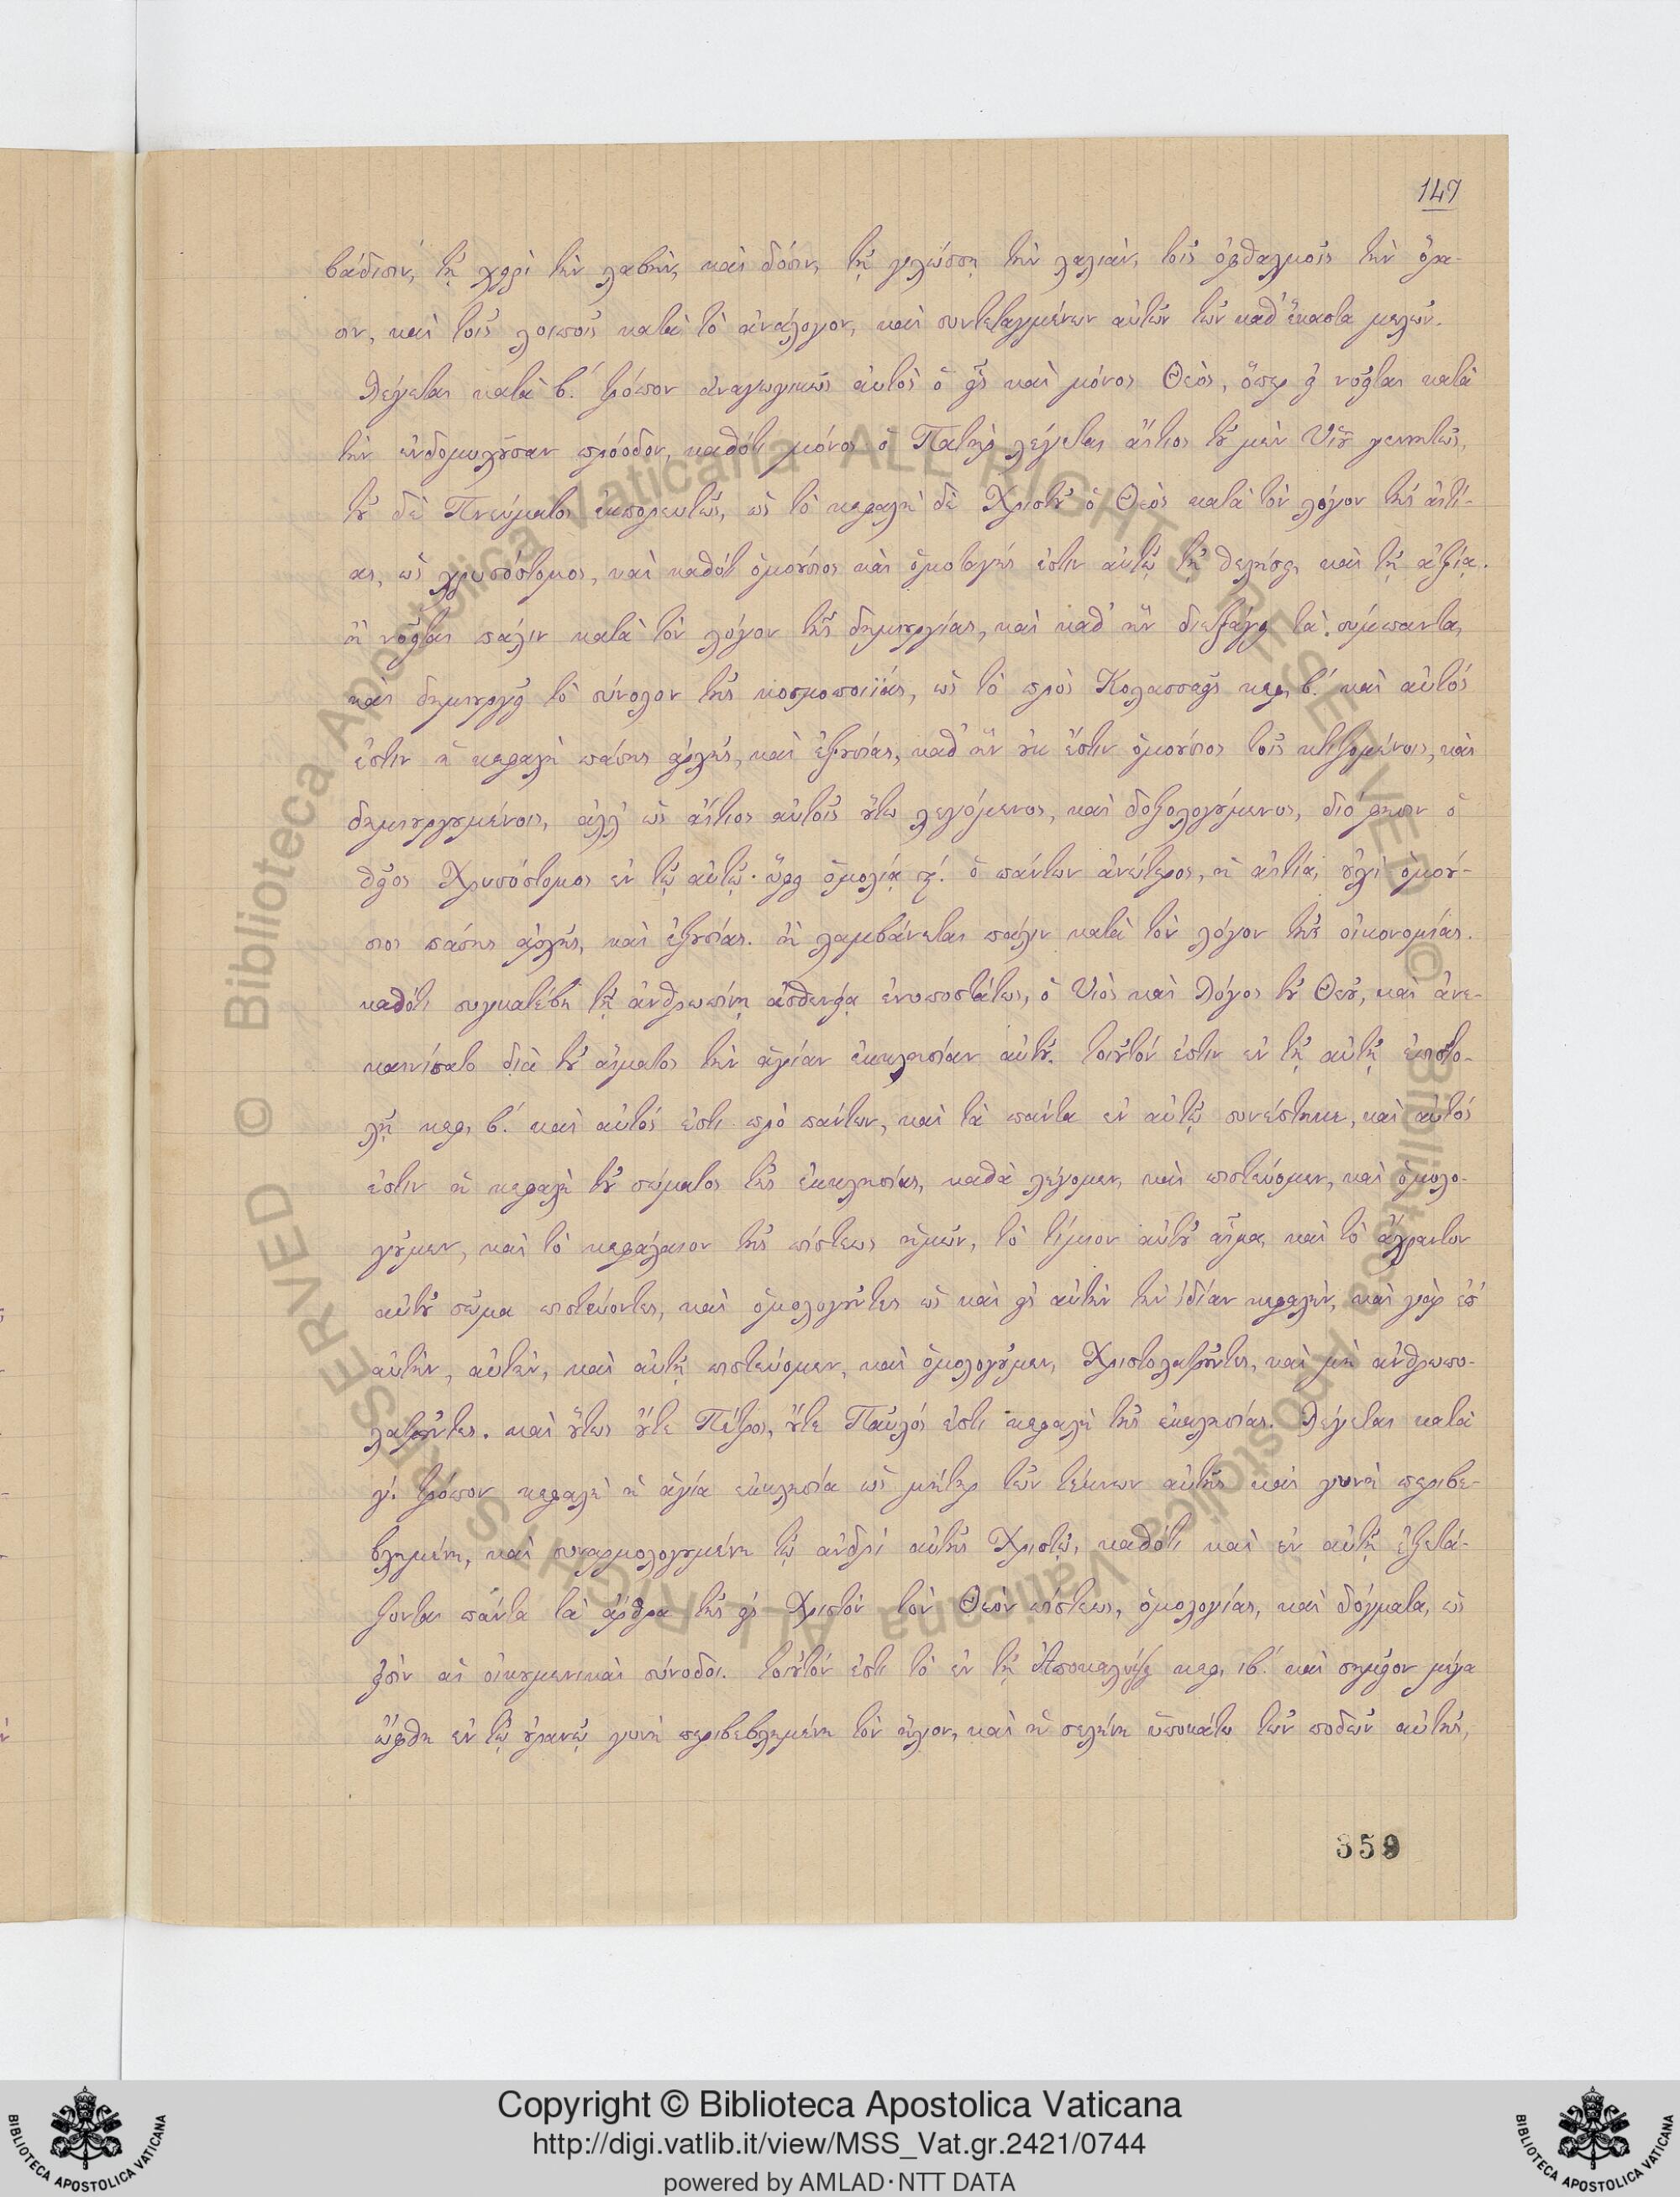 147
βάδισιν, τῇ χειρὶ τὴν λαβὴν, καὶ δόσιν, τῇ γλώσσῃ τὴν λαλιὰν, τοῖς ὀφθαλμοῖς τὴν ὅρα-
σιν, καὶ τοῖς λοιποῖς κατὰ τὸ ἀνάλογον, καὶ συντεταγμένων αὐτῶν τῶν καθ' ἕκαστα μελῶν.
Λέγεται κατὰ β.' τρόπον ἀναγωγικῶς αὐτὸς ὁ εἷς καὶ μόνος Θεὸς, ὅπερ ἢ νοεῖται κατὰ
τὴν ἐνδομυχοῦσαν πρόοδον, καθότι μόνος ὁ Πατὴρ λέγεται αἴτιος τοῦ μὲν Υἱοῦ γεννητῶς,
τοῦ δὲ Πνεύματος ἐκπορευτῶς, ὡς τὸ κεφαλὴ δὲ Χριστοῦ ὁ Θεὸς κατὰ τὸν λόγον τῆς αἰτί-
ας, ὡς χρυσόστομος, καὶ καθότι ὁμοούσιος καὶ ὁμοταγής ἐστιν αὐτῷ τῇ θελήσει, καὶ τῇ ἀξίᾳ.
ἢ νοεῖται πάλιν κατὰ τὸν λόγον τῆς δημιουργίας, καὶ καθ' ἣν διεξάγει τὰ σύμπαντα,
καὶ δημιουργεῖ τὸ σύνολον τῆς κοσμοποιΐας, ὡς τὸ πρὸς Κολασσαεῖς κεφ. β.' καὶ αὐτός
ἐστιν ἡ κεφαλὴ πάσης ἀρχῆς, καὶ ἐξουσίας, καθ' ἣν οὐκ ἔστιν ὁμοούσιος τοῖς κτιζομένοις, καὶ
δημιουργουμένοις, ἀλλ' ὡς αἴτιος αὐτοῖς οὕτω λεγόμενος, καὶ δοξολογούμενος, διό φησιν ὁ
θεῖος Χρυσόστομος ἐν τῷ αὐτῷ ὁμολίᾳ ὁ πάντων ἀνώτερος, ἡ αἰτία, οὐχὶ ὁμοού-
σιος πάσης ἀρχῆς, καὶ ἐξουσίας. ἢ λαμβάνεται πάλιν κατὰ τὸν λόγον τῆς οἰκονομίας.
καθότι συγκατέβη τῇ ἀνθρωπίνῃ ἀσθενείᾳ ἐνυποστάτως, ὁ Υἱὸς καὶ Λόγος τοῦ Θεοῦ, καὶ ἀνε-
καινίσατο διὰ τοῦ αἵματος τὴν ἁγίαν ἐκκλησίαν αὐτοῦ. τοιοῦτόν ἐστιν ἐν τῇ αὐτῇ ἐπιστο-
λῇ κεφ. β.' καὶ αὐτός ἐστι πρὸ πάντων, καὶ τὰ πάντα ἐν αὐτῷ συνέστηκε, καὶ αὐτός
ἐστιν ἡ κεφαλὴ τοῦ σώματος τῆς ἐκκλησίας, καθὰ λέγομεν, καὶ πιστεύομεν, καὶ ὁμολο-
γοῦμεν, καὶ τὸ κεφάλαιον τῆς πίστεως ἡμῶν, τὸ τίμιον αὐτοῦ αἷμα, καὶ τὸ ἄχραντον
αὐτοῦ σῶμα πιστεύοντες, καὶ ὁμολογοῦντες ὡς καὶ εἰς αὐτὴν τὴν ἰδίαν κεφαλὴν, καὶ γὰρ ἐπ'
αὐτὴν, αὐτὴν, καὶ αὐτῇ πιστεύομεν, καὶ ὁμολογοῦμεν, Χριστολατροῦντες, καὶ μὴ ἀνθρωπο-
λατροῦντες. καὶ οὕτως οὔτε Πέτρος, οὔτε Παῦλός ἐστι κεφαλὴ τῆς ἐκκλησίας. Λέγεται κατὰ
γ.' τρόπον κεφαλὴ ἡ ἁγία ἐκκλησία ὡς μήτηρ τῶν τέκνων αὐτῆς καὶ γυνὴ περιβε-
βλημένη, καὶ συναρμολογουμένη τῷ ἀνδρὶ αὐτῆς Χριστῷ, καθότι καὶ ἐν αὐτῇ ἐξετά-
ζονται πάντα τὰ ἄρθρα τῆς εἰς Χριστὸν τὸν Θεὸν πίστεως, ὁμολογίας, καὶ δόγματα, ὡς
εἰσὶν αἱ οἰκουμενικαὶ σύνοδοι. τοιοῦτόν ἐστι τὸ ἐν τῇ Ἀποκαλύψει κεφ. ιβ.' καὶ σημεῖον μέγα
ὤφθη ἐν τῷ οὐρανῷ γυνὴ περιβεβλημένη τὸν ἥλιον, καὶ ἡ σελήνη ὑποκάτω τῶν ποδῶν αὐτῆς,
359
© Biblioteca Apostolica Vaticana ALL RIGHTS RESERVED © Biblioteca Apostolica Vaticana ALL RIGHTS RESERVED
Copyright © Biblioteca Apostolica Vaticana
http://digi.vatlib.it/view/MSS_Vat.gr.2421/0744
powered by AMLAD·NTT DATA
BIBLIOTECA APOSTOLICA VATICANA
BIBLIOTECA APOSTOLICA VATICANA